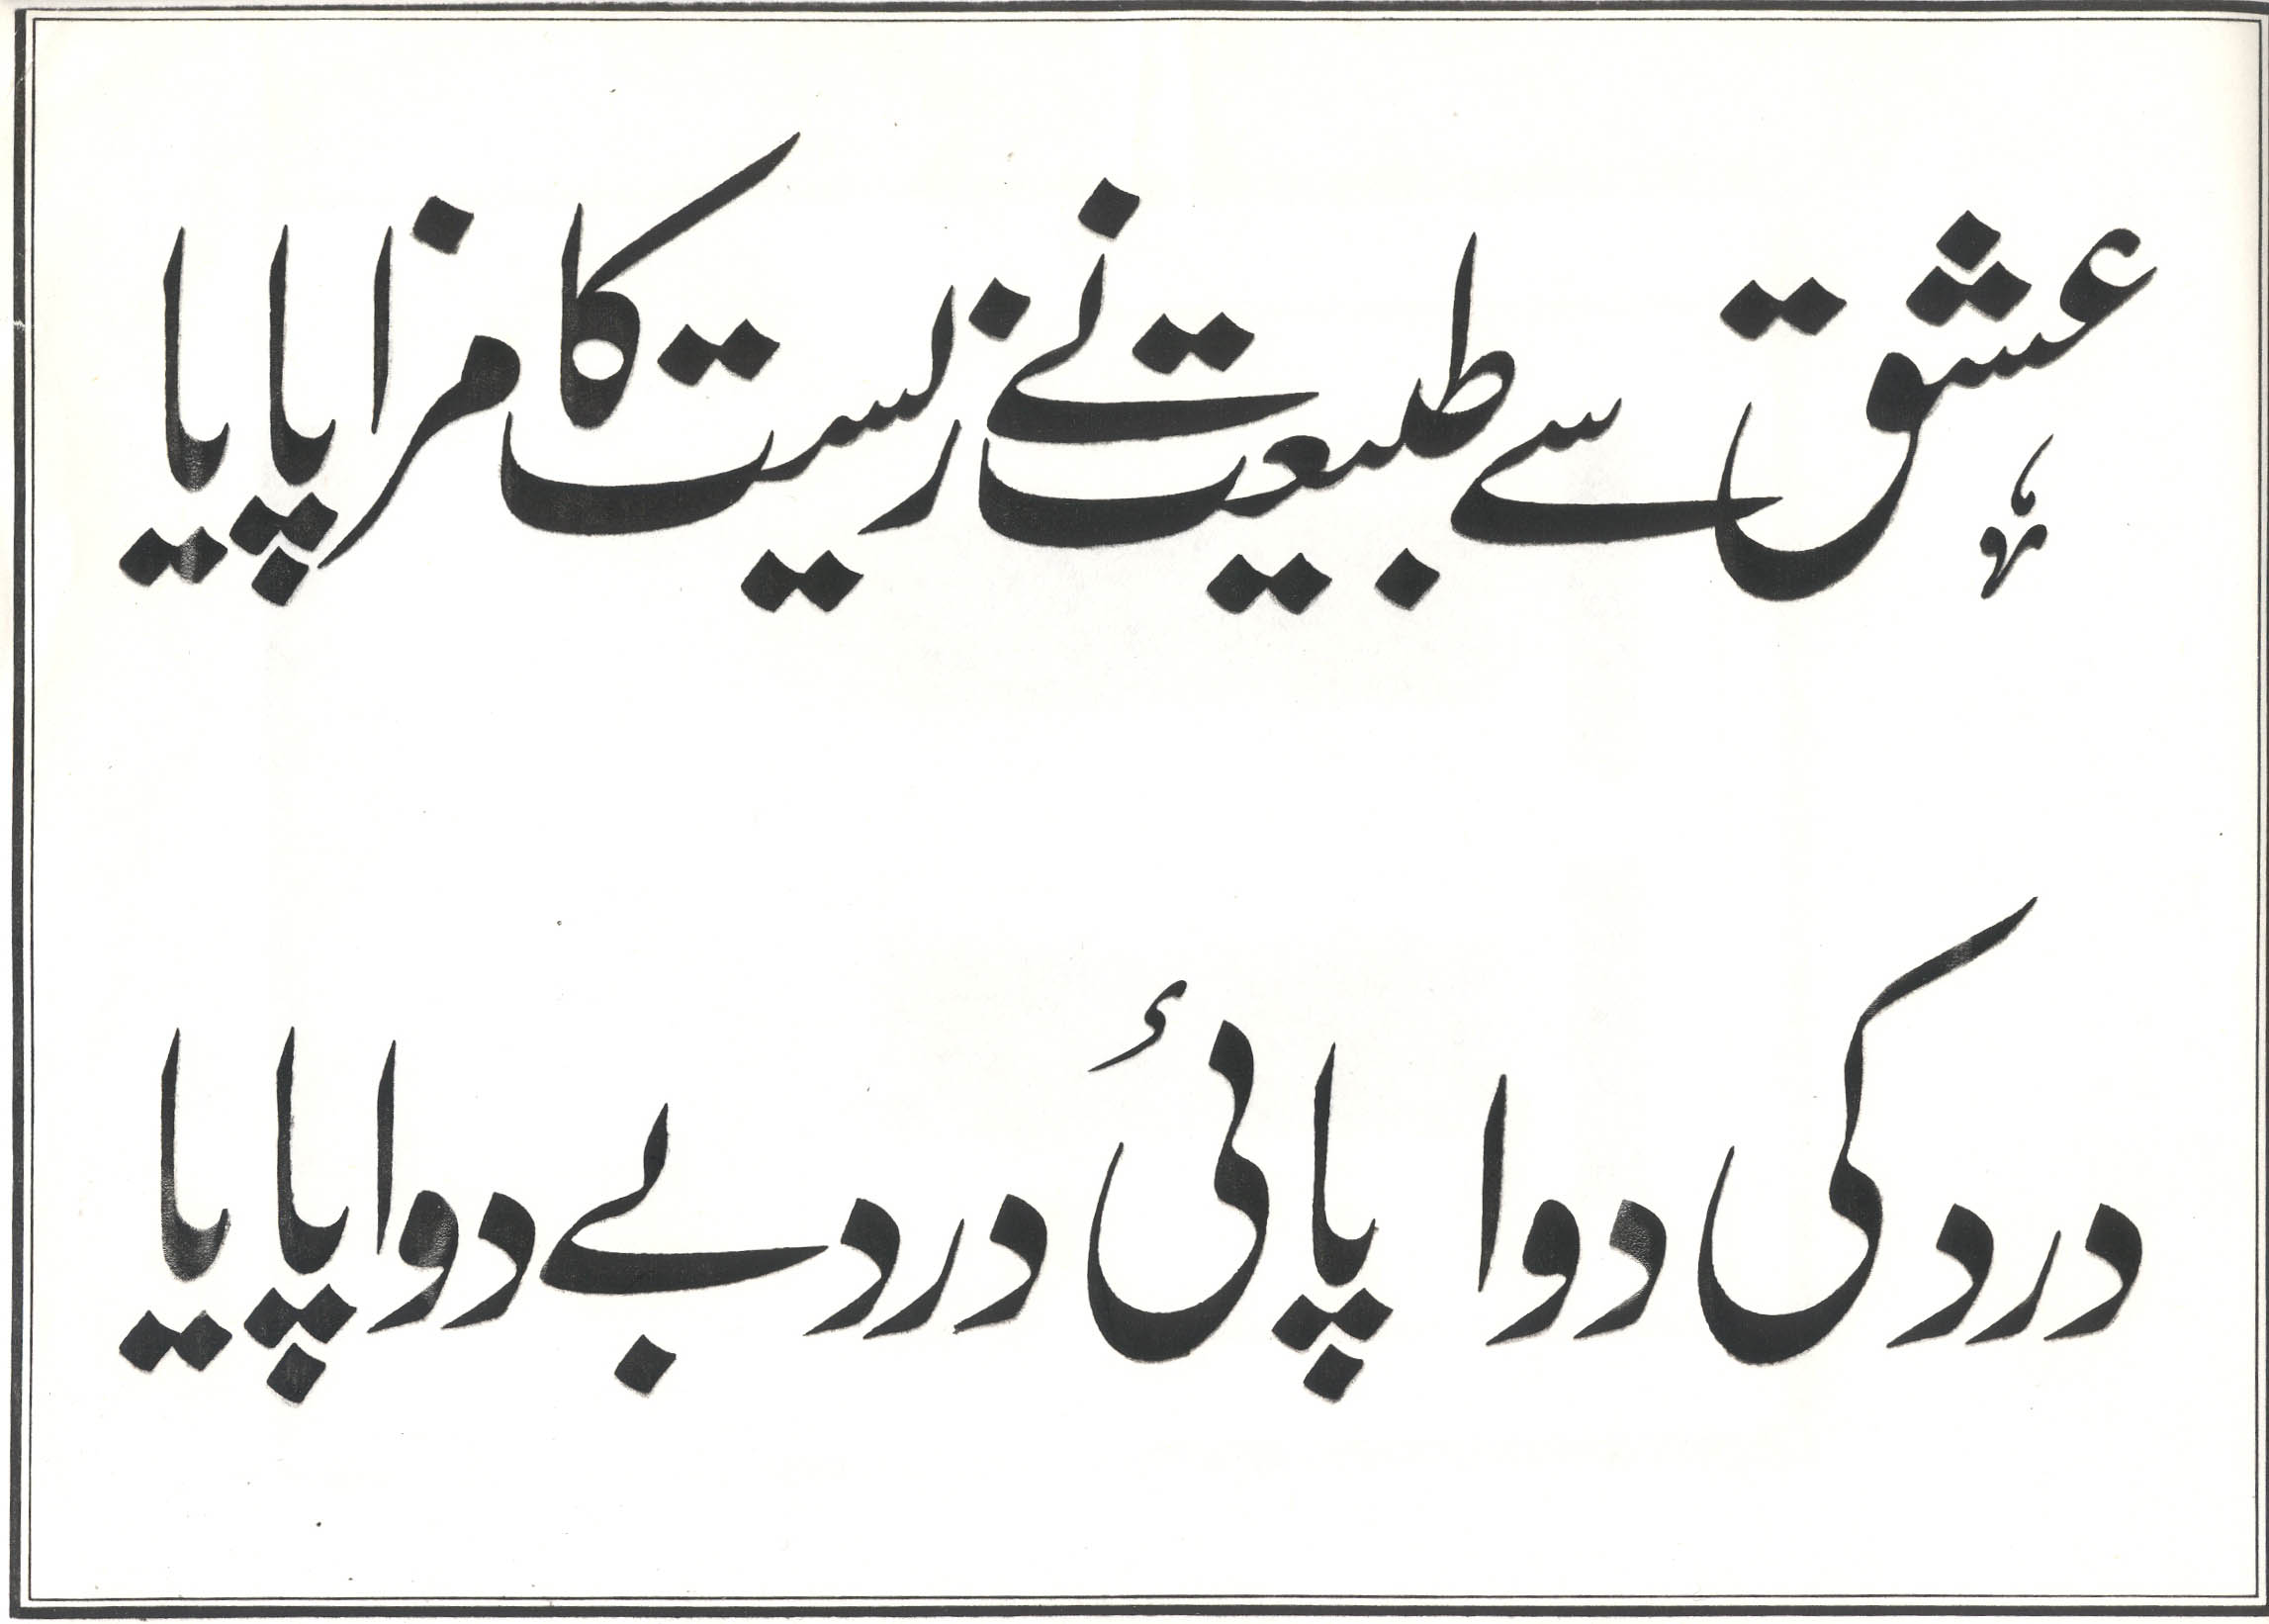 عشق سے طبیعت نے زیست کا مزا پایا
درد کی دوا پائی درد بے دوا پایا